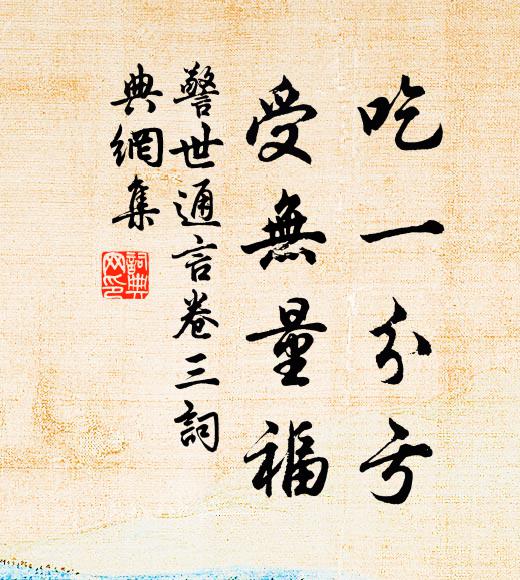 吃一分亏
受無量福
警世通言卷三詞
典網集
詞典網印